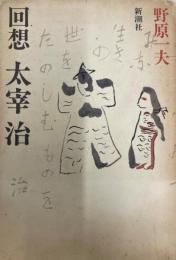 野原一夫
新潮社
回想 太宰治
生き
の
世を
たのしむものを
治